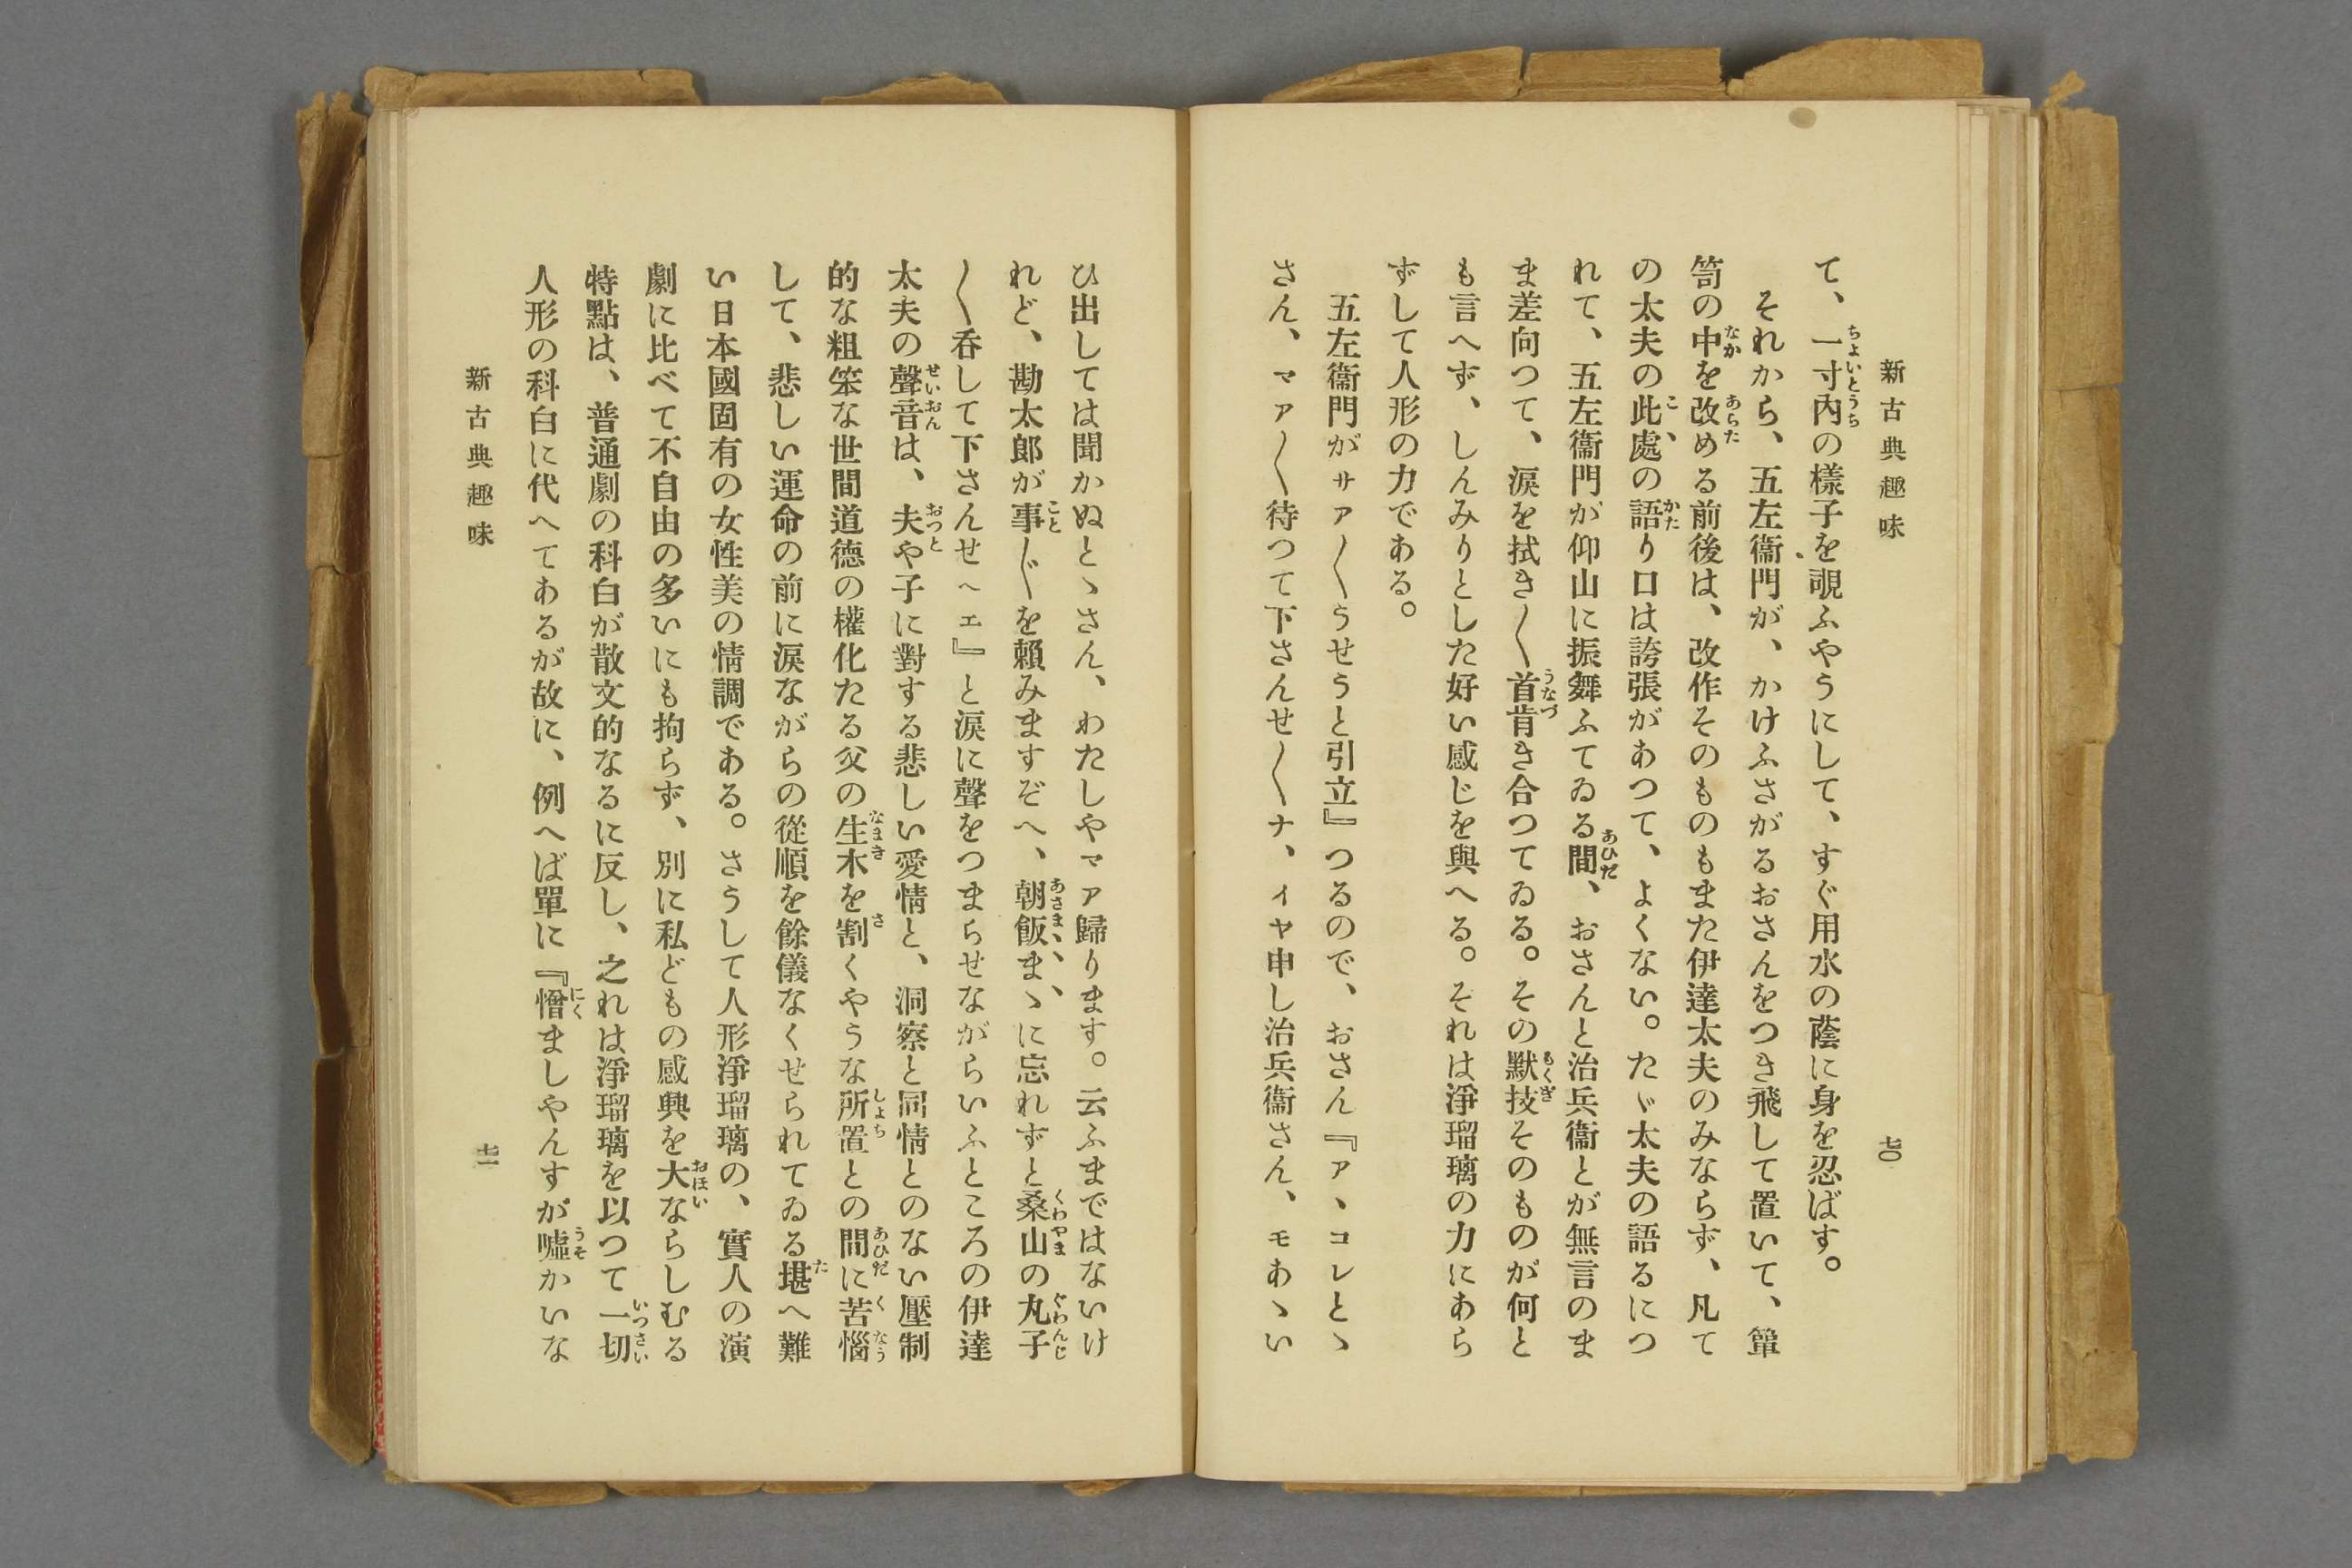 新古典趣味
七〇
て、一寸內の樣子を覗ふやうにして、すぐ用水の蔭に身を忍ばす。
それから、五左衞門が、かけふさがるおさんをつき飛して置いて、簞
笥の中を改める前後は、改作そのものもまた伊達太夫のみならず、凡て
の太夫の此處の語り口は誇張があつて、よくない。たゞ太夫の語るにつ
れて、五左衞門が仰山に振舞ふてゐる間、おさんと治兵衞とが無言のま
ま差向つて、淚を拭き〳〵首肯き合つてゐる。その默技そのものが何と
も言へず、しんみりとした好い感じを與へる。それは淨瑠璃の力にあら
ずして人形の力である。
五左衞門がサア〳〵うせうと引立』つるので、おさん『ア、コレとゝ
さん、マア〳〵待つて下さんせ〳〵ナ、イヤ申し治兵衞さん、モあゝい
ひ出しては聞かぬとゝさん、わたしやマア歸ります。云ふまではないけ
れど、勘太郎が事〴〵を賴みますぞへ、朝飯まゝに忘れずと桑山の丸子
〳〵呑して下さんせヘエ』と淚に聲をつまらせながらいふところの伊達
太夫の聲音は、夫や子に對する悲しい愛情と、洞察と同情とのない壓制
的な粗笨な世間道德の權化たる父の生木を割くやうな所置との間に苦惱
して、悲しい運命の前に淚ながらの從順を餘儀なくせられてゐる堪へ難
い日本國固有の女性美の情調である。さうして人形淨瑠璃の、實人の演
劇に比べて不自由の多いにも拘らず、別に私どもの感興を大ならしむる
特點は、普通劇の科白が散文的なるに反し、之れは淨瑠璃を以つて一切
人形の科白に代へてあるが故に、例へば單に『憎ましやんすが噓かいな
新古典趣味
七一